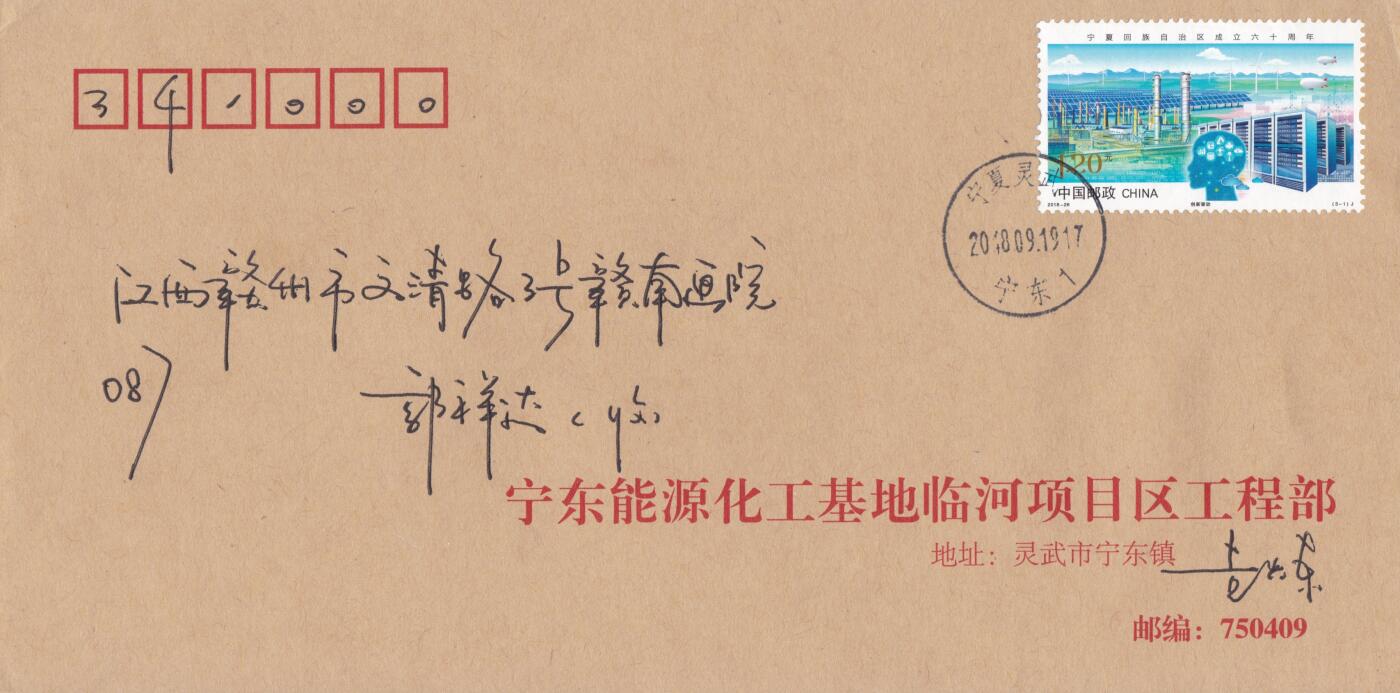 341000
宁夏回族自治区成立六十周年
1.20元
中国邮政 CHINA
2018-26
创新驱动
(3-1)J
宁夏灵武
2018.09.19.17
宁东1
江西赣州市文清路3号赣南画院
087
郭祥达(收)
宁东能源化工基地临河项目区工程部
地址：灵武市宁东镇
邮编：750409